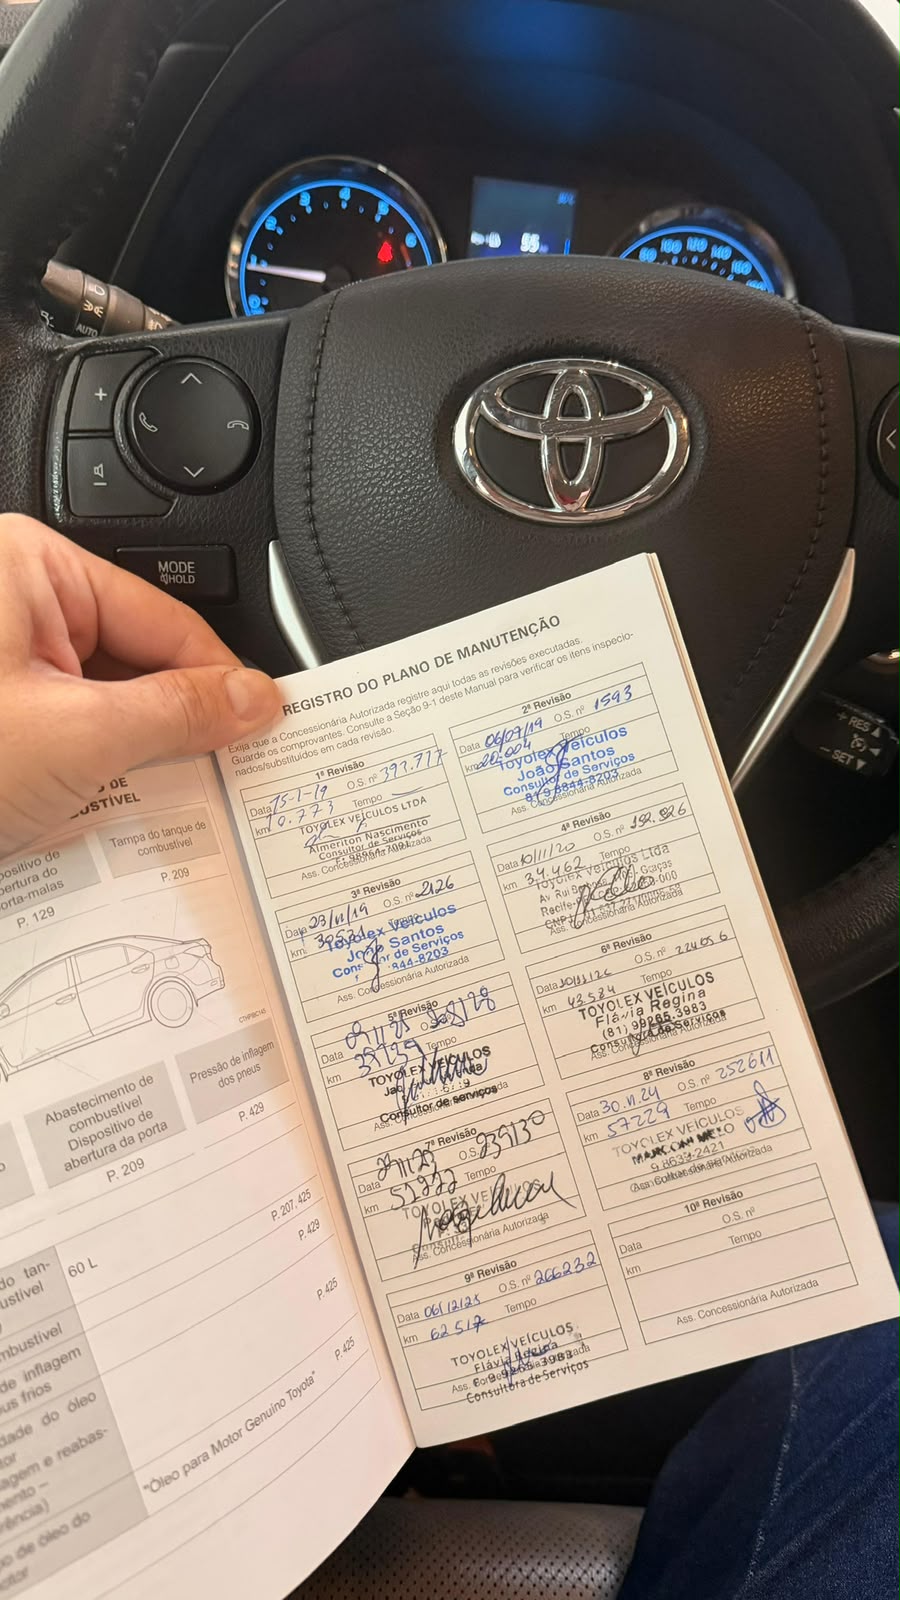 AUTO
MODE
HOLD
+ RES
- SET
REGISTRO DO PLANO DE MANUTENÇÃO
Exija que a Concessionária Autorizada registre aqui todas as revisões executadas.
Guarde os comprovantes. Consulte a Seção 9-1 deste Manual para verificar os itens inspecio-
nados/substituídos em cada revisão.
1ª Revisão
Data 15-1-19 O.S. nº 397.777
km 10.773 Tempo
TOYOLEX VEÍCULOS LTDA
Almeriton Nascimento
Consultor de Serviços
Ass. Concessionária Autorizada
2ª Revisão
Data 06/07/19 O.S. nº 1593
km 20.004 Tempo
Toyolex Veículos
João Santos
Consultor de Serviços
81 9 8844-8203
Ass. Concessionária Autorizada
3ª Revisão
Data 23/11/19 O.S. nº 2126
km Tempo
Toyolex Veículos
João Santos
Consultor de Serviços
844-8203
Ass. Concessionária Autorizada
4ª Revisão
Data 10/11/20 O.S. nº
km 34.462 Tempo
Toyolex Veículos Ltda
Av Rui
Recife
Ass. Concessionária Autorizada
5ª Revisão
Data O.S.
km
TOYOLEX VEÍCULOS
Consultor de serviços
Ass. Concessionária Autorizada
6ª Revisão
Data O.S. nº 224056
km 43.584 Tempo
TOYOLEX VEÍCULOS
Flávia Regina
(81) 99265.3983
Consultora de Serviços
Ass. Concessionária Autorizada
7ª Revisão
Data O.S. 239130
km 51222 Tempo
TOYOLEX VEÍCULOS
Ass. Concessionária Autorizada
8ª Revisão
Data 30.11.24 O.S. nº 252611
km 57229 Tempo
TOYOLEX VEÍCULOS
MARCONI MELO
9.8633-2421
Ass. Concessionária Autorizada
9ª Revisão
Data 06/12/25 O.S. nº 266232
km 62517 Tempo
TOYOLEX VEÍCULOS
Flávia Regina
Ass. Concessionária Autorizada
Consultora de Serviços
10ª Revisão
Data O.S. nº
km Tempo
Ass. Concessionária Autorizada
O DE
BUSTÍVEL
positivo de
bertura do
orta-malas
Tampa do tanque de
combustível
P. 129
P. 209
Abastecimento de
combustível
Dispositivo de
abertura da porta
Pressão de inflagem
dos pneus
P. 209
P. 429
do tan-
ustível
60 L
P. 207, 425
mbustível
P. 429
de inflagem
us frios
P. 425
dade do óleo
or
agem e reabas-
mento –
rência)
"Óleo para Motor Genuíno Toyota"
P. 425
po de óleo do
otor